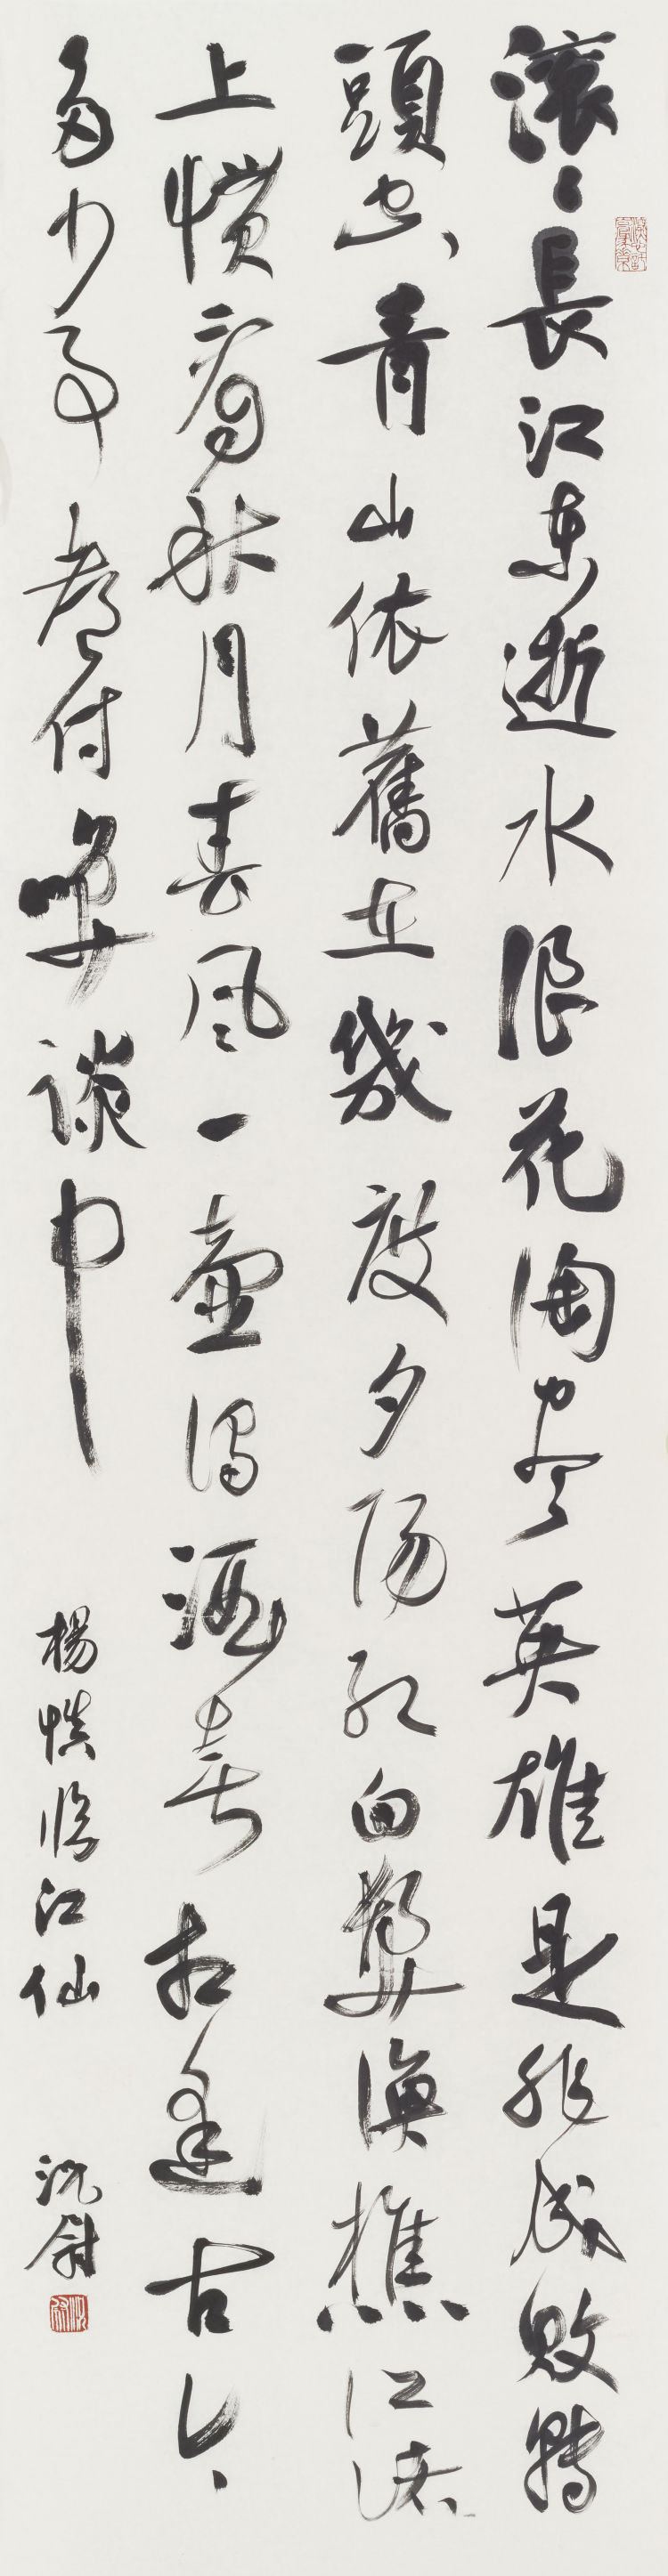 滾〻長江東逝水浪花淘盡英雄是非成敗轉
頭空青山依舊在幾度夕陽紅白髮漁樵江渚
上慣看秋月春風一壺濁酒喜相逢古今
多少事都付笑談中
楊慎臨江仙
沈